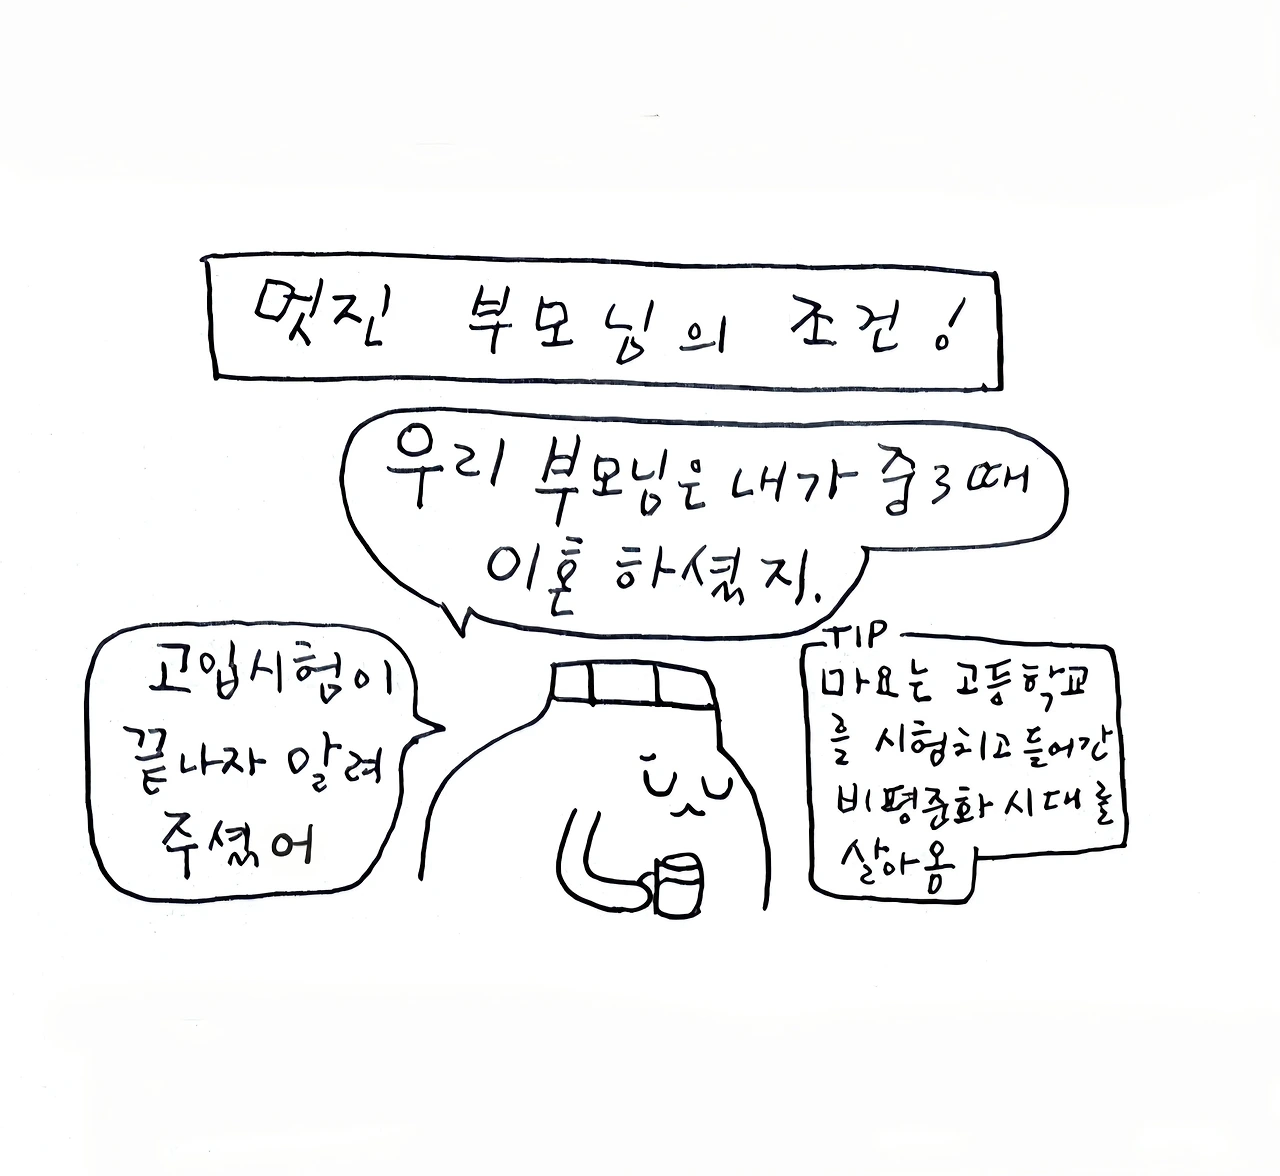 멋진 부모님의 조건!
우리 부모님은 내가 중3때
이혼 하셨지.
고입시험이
끝나자 말려
주셨어
TIP
마요는 고등학교
를 시험치고 들어간
비평준화 시대를
살아옴